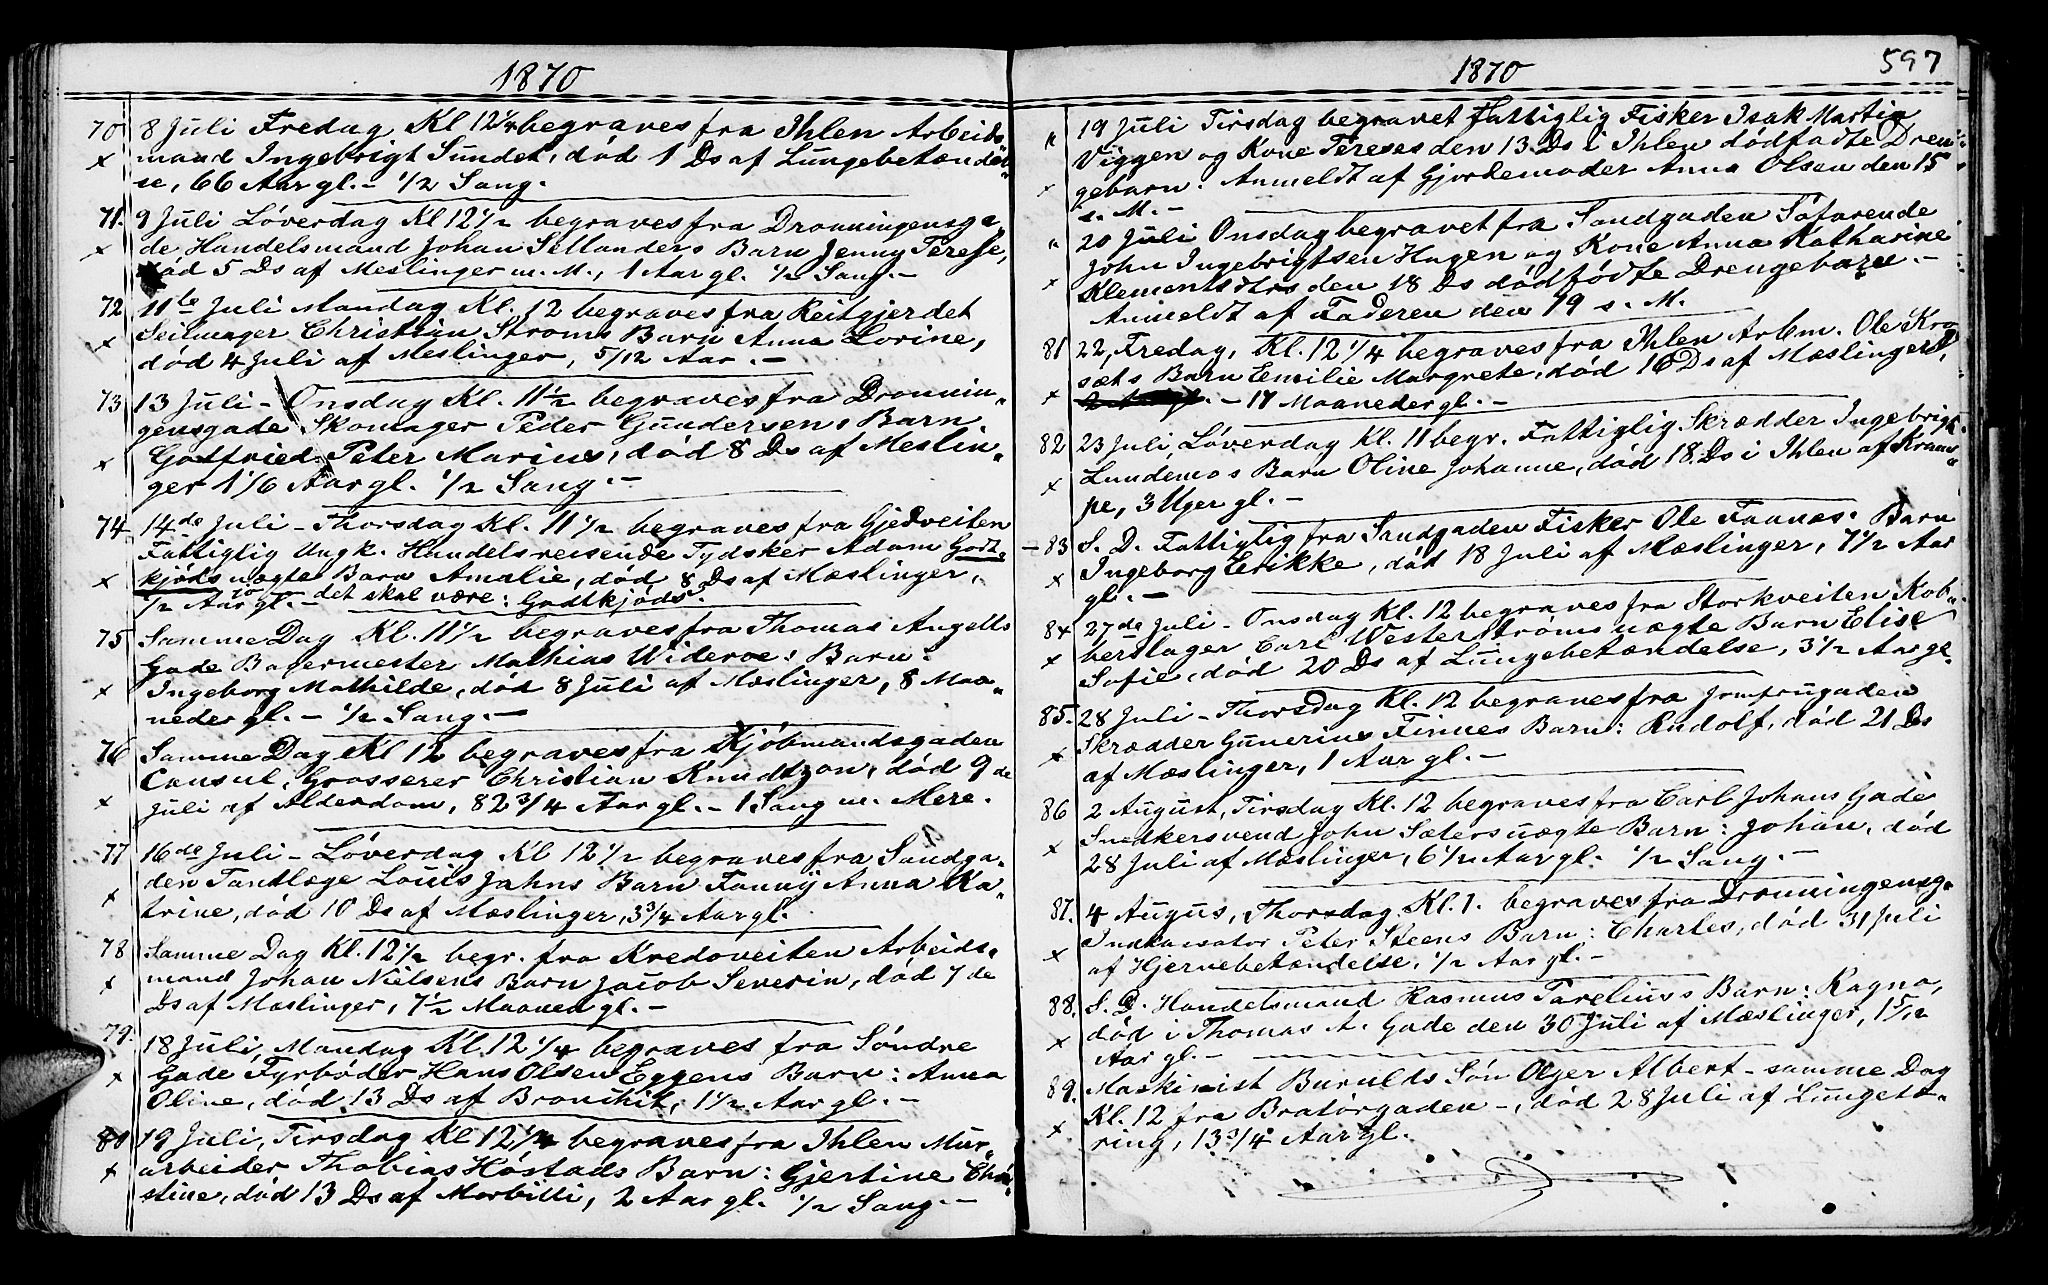 1870
70 8 Juli Fredag Kl 12 1/4 begraves fra Ihlen Arbeids„
x mand Ingebrigt Sundet, død 1 Ds af Lungebetændel„
se, 66 Aar gl. – 1/2 Sang.
71. 9 Juli Löverdag Kl 12 1/2 begraves fra Dronningensga„
x de Handelsmand Johan Sellanders Barn Jenny Terese,
død 5 Ds af Meslinger m. M., 1 Aar gl. 1/2 Sang. –
72 11te Juli Mandag Kl. 12 begraves fra Reitgjerdet
x Seilmager Christian Ströms Barn Anna Lorine,
död 4 Juli af Meslinger, 5/12 Aar. –
73 13 Juli – Onsdag Kl. 11 1/2 begraves fra Dronnin„
gensgade Skomager Peder Gundersens Barn.
x Godtfried Peter Marius, död 8 Ds af Meslin„
ger 1 1/6 Aar gl. 1/2 Sang. –
74 14de Juli – Thorsdag Kl. 11 1/2 begraves fra Gjedveiten
Fattiglig Ungk. Handelsreisende Tydsker Adam Godt„
x kjöds uægte Barn Amalie, död 8 Ds af Mæslinger,
1/2 Aar gl. – det skal være: Godtkjöds.
75 Samme Dag Kl. 11 1/2 begraves fra Thomas Angells
Gade Bagermester Mathias Wideroe: Barn:
x Ingeborg Mathilde, död 8 Juli af Mæslinger, 8 Maa„
neder gl. – 1/2 Sang. –
76 Samme Dag Kl 12 begraves fra Kjöbmandsgaden
Consul, Grosserer Christian Knudtzon, död 9de
x Juli af Alderdom, 82 3/4 Aar gl. – 1 Sang m. Mere.
77 16de Juli – Löverdag Kl 12 1/2 begraves fra Sandga„
den Tandlæge Louis Jahns Barn Fanny Anna Ka„
x trine, död 10 Ds af Mæslinger, 3 3/4 Aar gl.
78 Samme Dag Kl. 12 1/2 begr. fra Kredoveiten Arbeids„
x mand Johan Nielsens Barn Jacob Severin, död 7de
Ds af Mæslinger, 7 1/2 Maaned gl. –
79. 18 Juli, Mandag Kl. 12 1/4 begraves fra Söndre
x Gade Fyrböder Hans Olsen Eggens Barn: Anna
Oline, död 13 Ds af Bronchit, 1 1/2 Aar gl. –
80 19 Juli, Tirsdag Kl 12 1/4 begraves fra Ihlen Mur„
x arbeider Thobias Höstads Barn: Gjertine Chri„
stine, död 13 Ds af Morbilli, 2 Aar gl. 1/2 Sang. –
1870 597
„ 19 Juli Tirsdag begravet Fattiglig Fisker Isak Martin
Viggen og Kone Tereses den 13 Ds i Ihlen dödfödte Dren„
x gebarn. Anmeldt af Gjordemoder Anna Olsen den 15
s. M. –
„ 20 Juli Onsdag begravet fra Sandgaden Söfarende
John Ingebrigtsen Hagen og Kone Anna Katharine
x Klementsdtrs den 18 Ds dödfödte Drengebarn. –
Anmeldt af Faderen den 19 s. M.
81 22, Fredag, Kl. 12 1/4 begraves fra Ihlen Arbm. Ole Kro„
sæts Barn Emilie Margrete, död 16 Ds af Mæslinger,
x – 17 Maaneder gl. –
82 23 Juli, Löverdag Kl. 11 begr. Fattiglig Skrædder Ingebrigt
x Lundemos Barn Oline Johanne, död 18. Ds i Ihlen af Kram„
pe, 3 Uger gl. –
– 83 S. D. Fattiglig fra Sandgaden Fisker Ole Fannes Barn
x Ingeborg Erikke, död 18 Juli af Mæslinger, 7 1/2 Aar
gl. –
84 27de Juli – Onsdag Kl. 12 begraves fra Storkveiten Kob„
x berslager Carl Westerströms uægte Barn Elise
Sofie, död 20 Ds af Lungebetændelse, 3 1/2 Aar gl.
85. 28 Juli – Thorsdag Kl. 12 begraves fra Jomfrugaden
x Skrædder Gunerius Finnes Barn: Rudolf, död 21 Ds
af Mæslinger, 1 Aar gl. –
86 2 August, Tirsdag Kl. 12 begraves fra Carl Johans Gade
x Snedkersvend John Sæters uægte Barn: Johan, död
28 Juli af Mæslinger, 6 1/2 Aar gl. 1/2 Sang. –
87. 4 Augus, Thorsdag Kl. 1. begraves fra Dronningensg.
x Indkassator Peter Steens Barn: Charles, död 31 Juli
af Hjernebetændelse, 1/2 Aar gl. –
88. S. D. Handelsmand Rasmus Parelius's Barn: Ragna,
x död i Thomas A. Gade den 30 Juli af Mæslinger, 1 5/12
Aar gl. –
89. Maskinist Burulds Sön Olger Albert – samme Dag
x Kl. 12 fra Bratörgaden –, död 28 Juli af Lungetæ„
ring, 13 3/4 Aar gl.